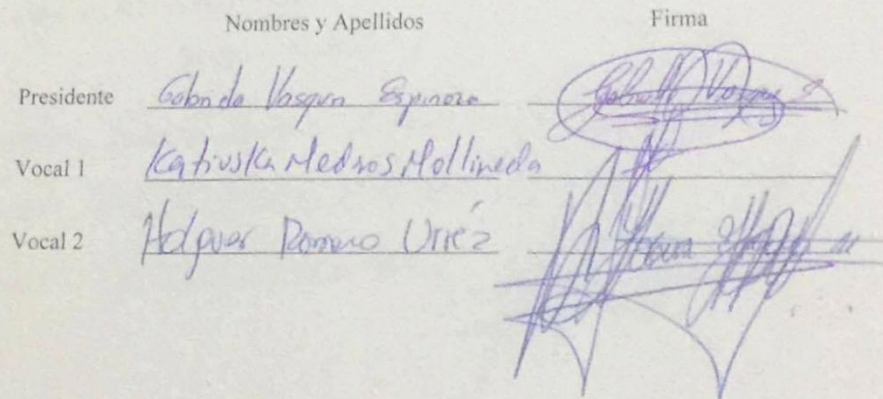 Nombres y Apellidos Firma
Presidente Gabriela Vasquez Espinoza
Vocal 1 Katiuska Medros Mollineda
Vocal 2 Holguer Romero Urréz